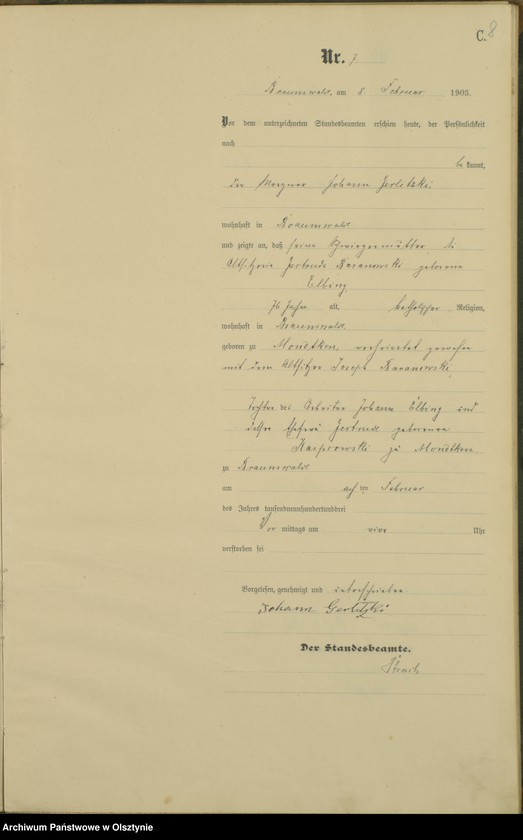 C. 8
Nr. 7
Braunswalde, am 8. Februar 1903.
Vor dem unterzeichneten Standesbeamten erschien heute, der Persönlichkeit
nach
be kannt,
der Johann Gerlitzki
wohnhaft in Braunswalde
und zeigte an, daß seine Schwiegermutter, die
Altsitzerin Baranowski geborene
Elbing,
76 Jahre alt, katholischer Religion,
wohnhaft in Braunswalde
geboren zu Mondtken, verheiratet gewesen
mit dem Altsitzer Joseph Baranowski
Tochter des Johann Elbing und
dessen Ehefrau Gertrud geborene
Kasprowski zu Mondtken
zu Braunswalde
am achten Februar
des Jahres tausendneunhundertunddrei
Vor mittags um vier Uhr
verstorben sei
Vorgelesen, genehmigt und unterschrieben
Johann Gerlitzki
Der Standesbeamte.
Archiwum Państwowe w Olsztynie